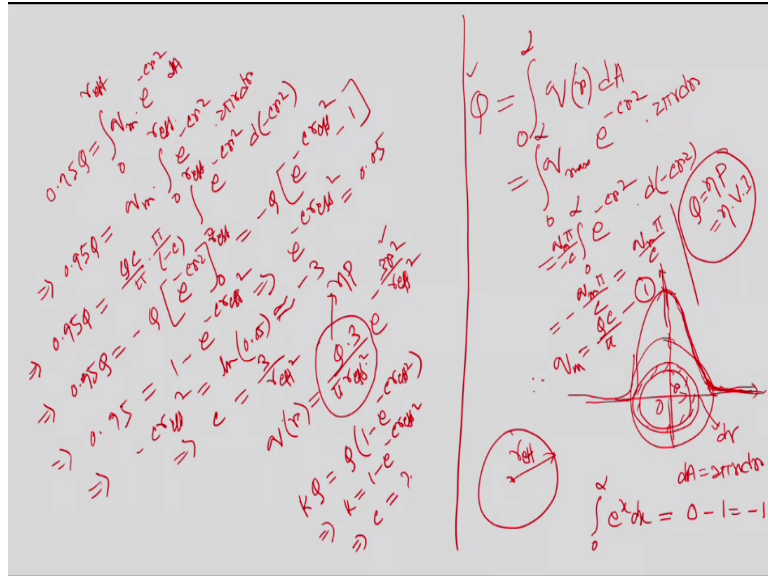 0.95Q = ∫₀^{r_eff} q_m . e^{-cr²} dA
⇒ 0.95Q = q_m . ∫₀^{r_eff} e^{-cr²} . 2πrdr
⇒ 0.95Q = \frac{Qc}{π} . \frac{π}{(-c)} ∫₀^{r_eff} e^{-cr²} d(-cr²)
⇒ 0.95Q = -Q [e^{-cr²}]₀^{r_eff} = -Q [e^{-cr_eff²} - 1]
⇒ 0.95 = 1 - e^{-cr_eff²} ⇒ e^{-cr_eff²} = 0.05
⇒ -cr_eff² = ln(0.05) ≃ -3
⇒ c = \frac{3}{r_eff²}
ηP
q(r) = \frac{Q.3}{π r_eff²} e^{-\frac{3r²}{r_eff²}}
KQ = Q(1 - e^{-cr_eff²})
⇒ K = 1 - e^{-cr_eff²}
⇒ c = ?
Q = ∫₀^α q(r) dA
= ∫₀^α q_max e^{-cr²} . 2πrdr
= \frac{q_m π}{-c} ∫₀^α e^{-cr²} . d(-cr²)
= -\frac{q_m π}{c} = \frac{q_m π}{c}
∴ q_m = \frac{Qc}{π} - ①
Q = ηP
= η.V.I
0
r
dr
r_eff
dA = 2πrdr
∫₀^α e^x dx = 0 - 1 = -1